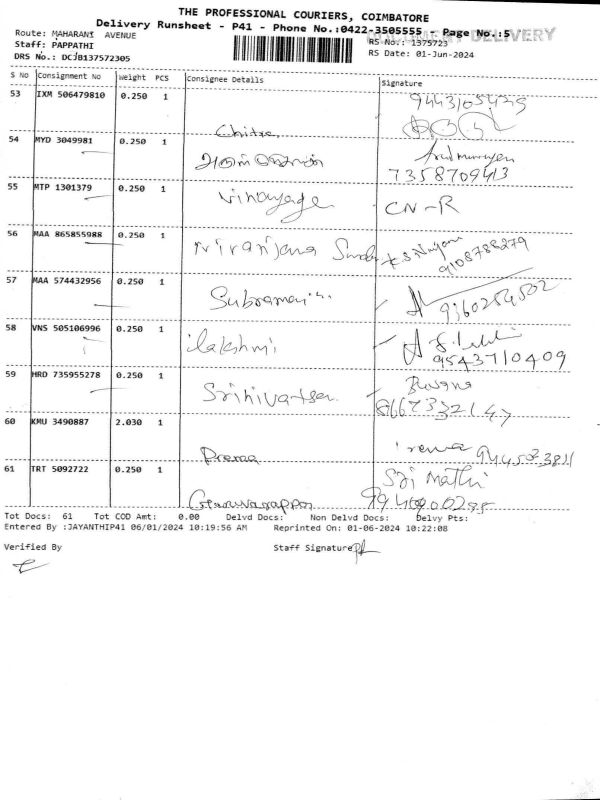 THE PROFESSIONAL COURIERS, COIMBATORE
DOCUMENT DELIVERY
Delivery Runsheet - P41 - Phone No.:0422-3505555 - Page No.:5
Route: MAHARANI AVENUE
RS No.: 1375723
Staff: PAPPATHI
RS Date: 01-Jun-2024
DRS No.: DCJB137572305
S No Consignment No Weight PCS Consignee Details Signature
53 IXM 506479810 0.250 1
Chitra
54 MYD 3049981 0.250 1
7358709413
55 MTP 1301379 0.250 1 Vinayaga CN-R
56 MAA 865855988 0.250 1 Niranjana
9108788279
57 MAA 574432956 0.250 1
9360254502
58 VNS 505106996 0.250 1 ilakshmi
9543710409
59 HRD 735955278 0.250 1 Srinivatsa
60 KMU 3490887 2.030 1
Prema
61 TRT 5092722 0.250 1 Sri mathi
Tot Docs: 61 Tot COD Amt: 0.00 Delvd Docs: Non Delvd Docs: Delvy Pts:
Entered By :JAYANTHIP41 06/01/2024 10:19:56 AM Reprinted On: 01-06-2024 10:22:08
Verified By Staff Signature